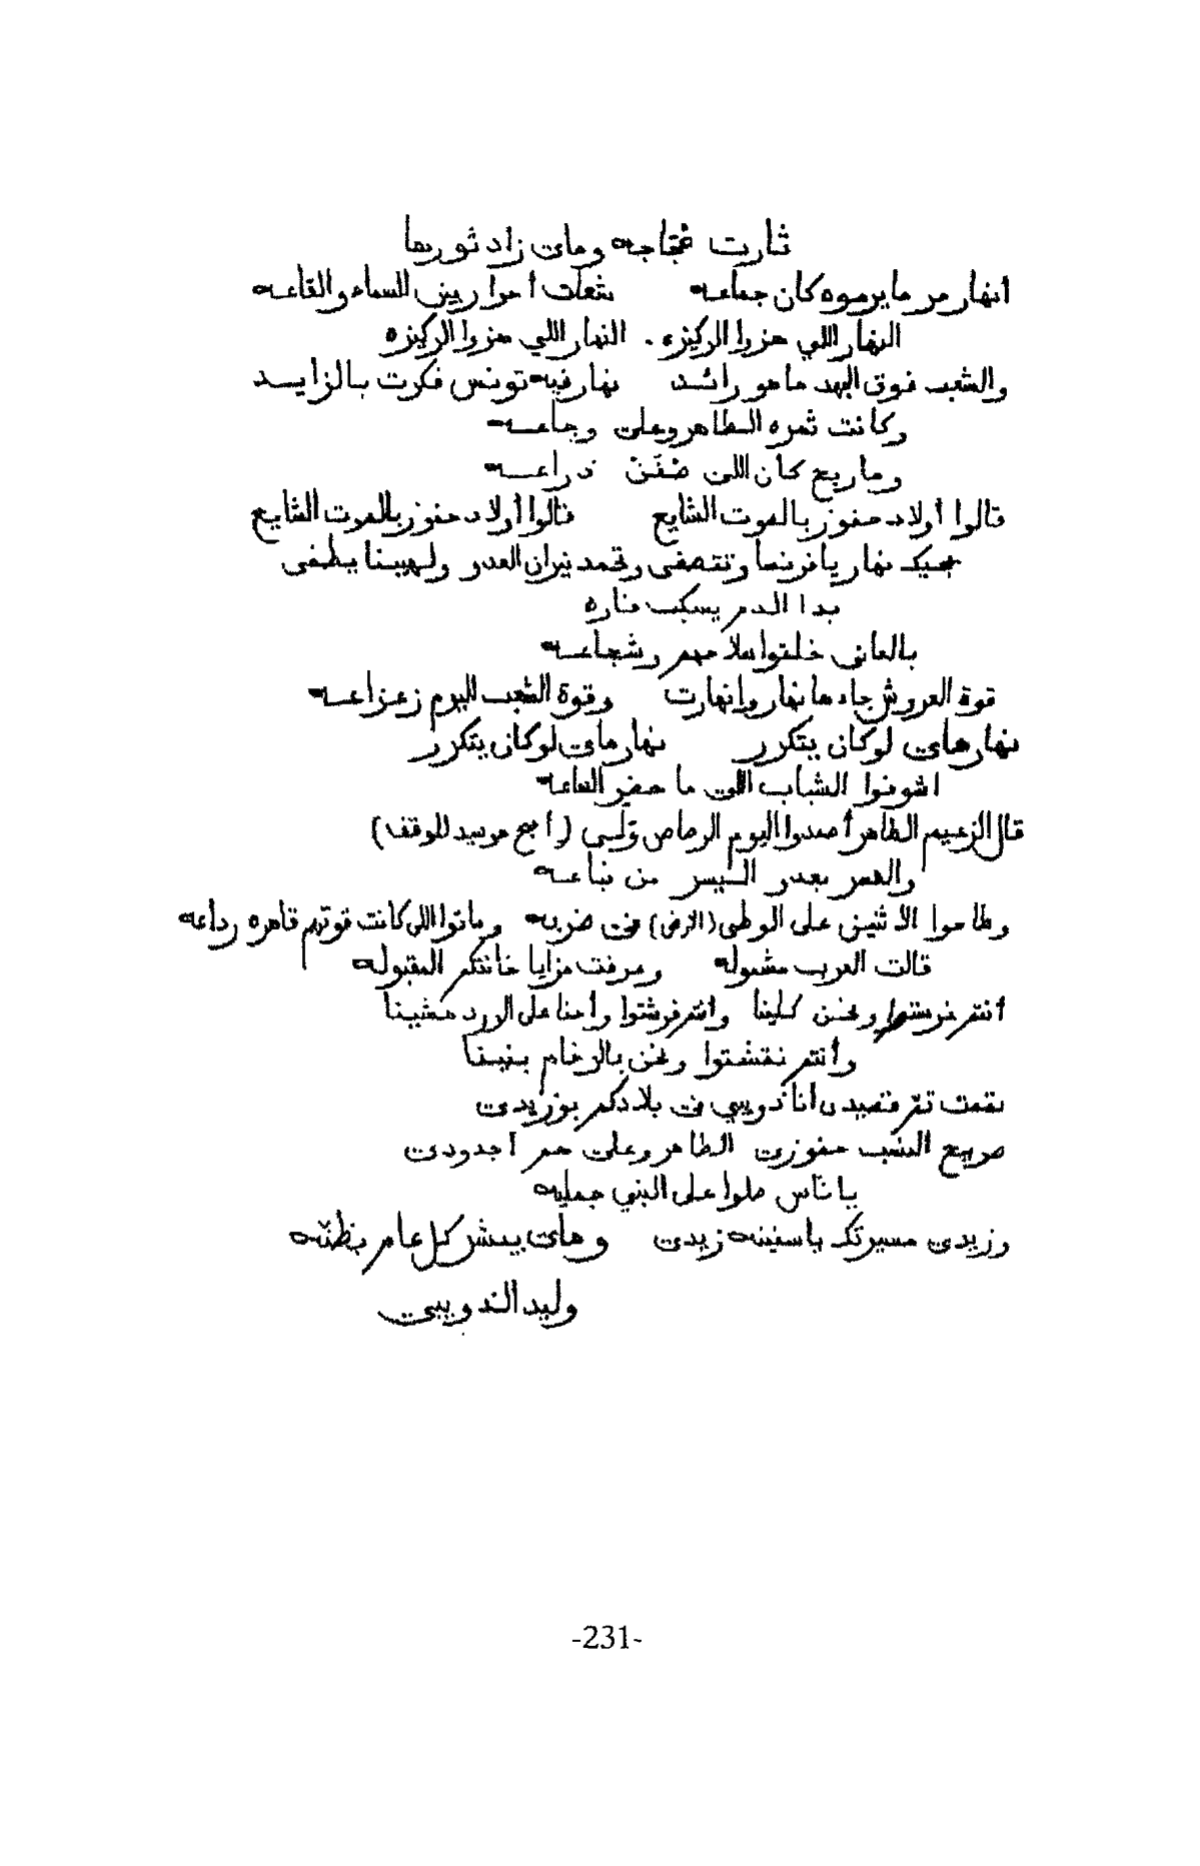 ثارت عجاجه وهاي زاد ثورها
أنهار مر ما يرموه كان جماعه شعلت أحوا ربين السماء والقاعه
النهار اللي هزوا الركيزه . النهار اللي هزوا الركيزه
والشعب فوق الهد ما هو رائد نهار فيه تونس فكرت بالزايد
وكانت ثمره الطاهر وعلي وجاعه
وما ربح كان اللي ذراعه
قالوا أولاد حفوز بالموت الشايع قالوا أولاد حفوز بالموت الشايع
يجيك نهار يا فرنسا وتتصفى وتخمد نيران العدو ولهيبنا يطفى
بدا الدم يسكب
بالعاني خلقوا ملاحهم وشجاعه
قوة العروش جاءها نهار وانهارت وقوة الشعب اليوم زعزاعه
نهار هاي لو كان يتكرر نهار هاي لو كان يتكرر
اشوفوا الشباب اللي ما حضر الساعه
قال الزعيم الطاهر أصمدوا اليوم الرصاص ولى (وأصبح مرسيد للوقف)
والعمر بعدو اليسر من نباعه
وطاحوا الاثنين على الوطى (الارض) في ضربه وماتوا اللي كانت قوتهم قاهره رداعه
قالت العرب مشموله وعرفت مزايا خانتكم المقبوله
أنتم فرشتوا ونحن كلينا وانتم فرشتوا وأحنا على الورد مشينا
وأنتم نقشتوا ونحن بالرخام بنينا
نقمت تم قصيدي أنا ذويبي في بلادكم بوزيدي
صريح الشعب حفوزي الطاهر وعلي هم أجدودي
يا ناس صلوا على النبي جمليه
وزيدي مسيرتك يا سفينه زيدي وهاي يبشر كل عام بظنه
وليد الندويبي
-231-